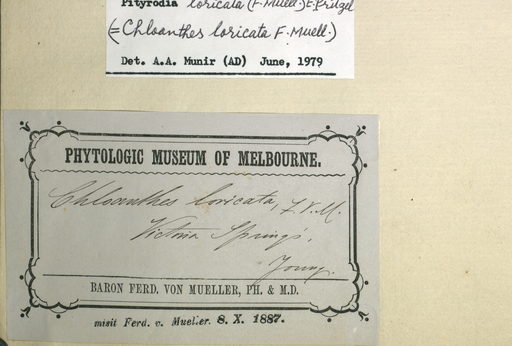 Pityrodia loricata (F. Muell.) E. Pritzel
(= Chloanthes loricata F. Muell.)
Det. A.A. Munir (AD) June, 1979
PHYTOLOGIC MUSEUM OF MELBOURNE.
Chloanthes loricata, F.v.M.
Victoria Springs,
Young.
BARON FERD. VON MUELLER, PH. & M.D.
misit Ferd. v. Mueller. 8. X. 1887.